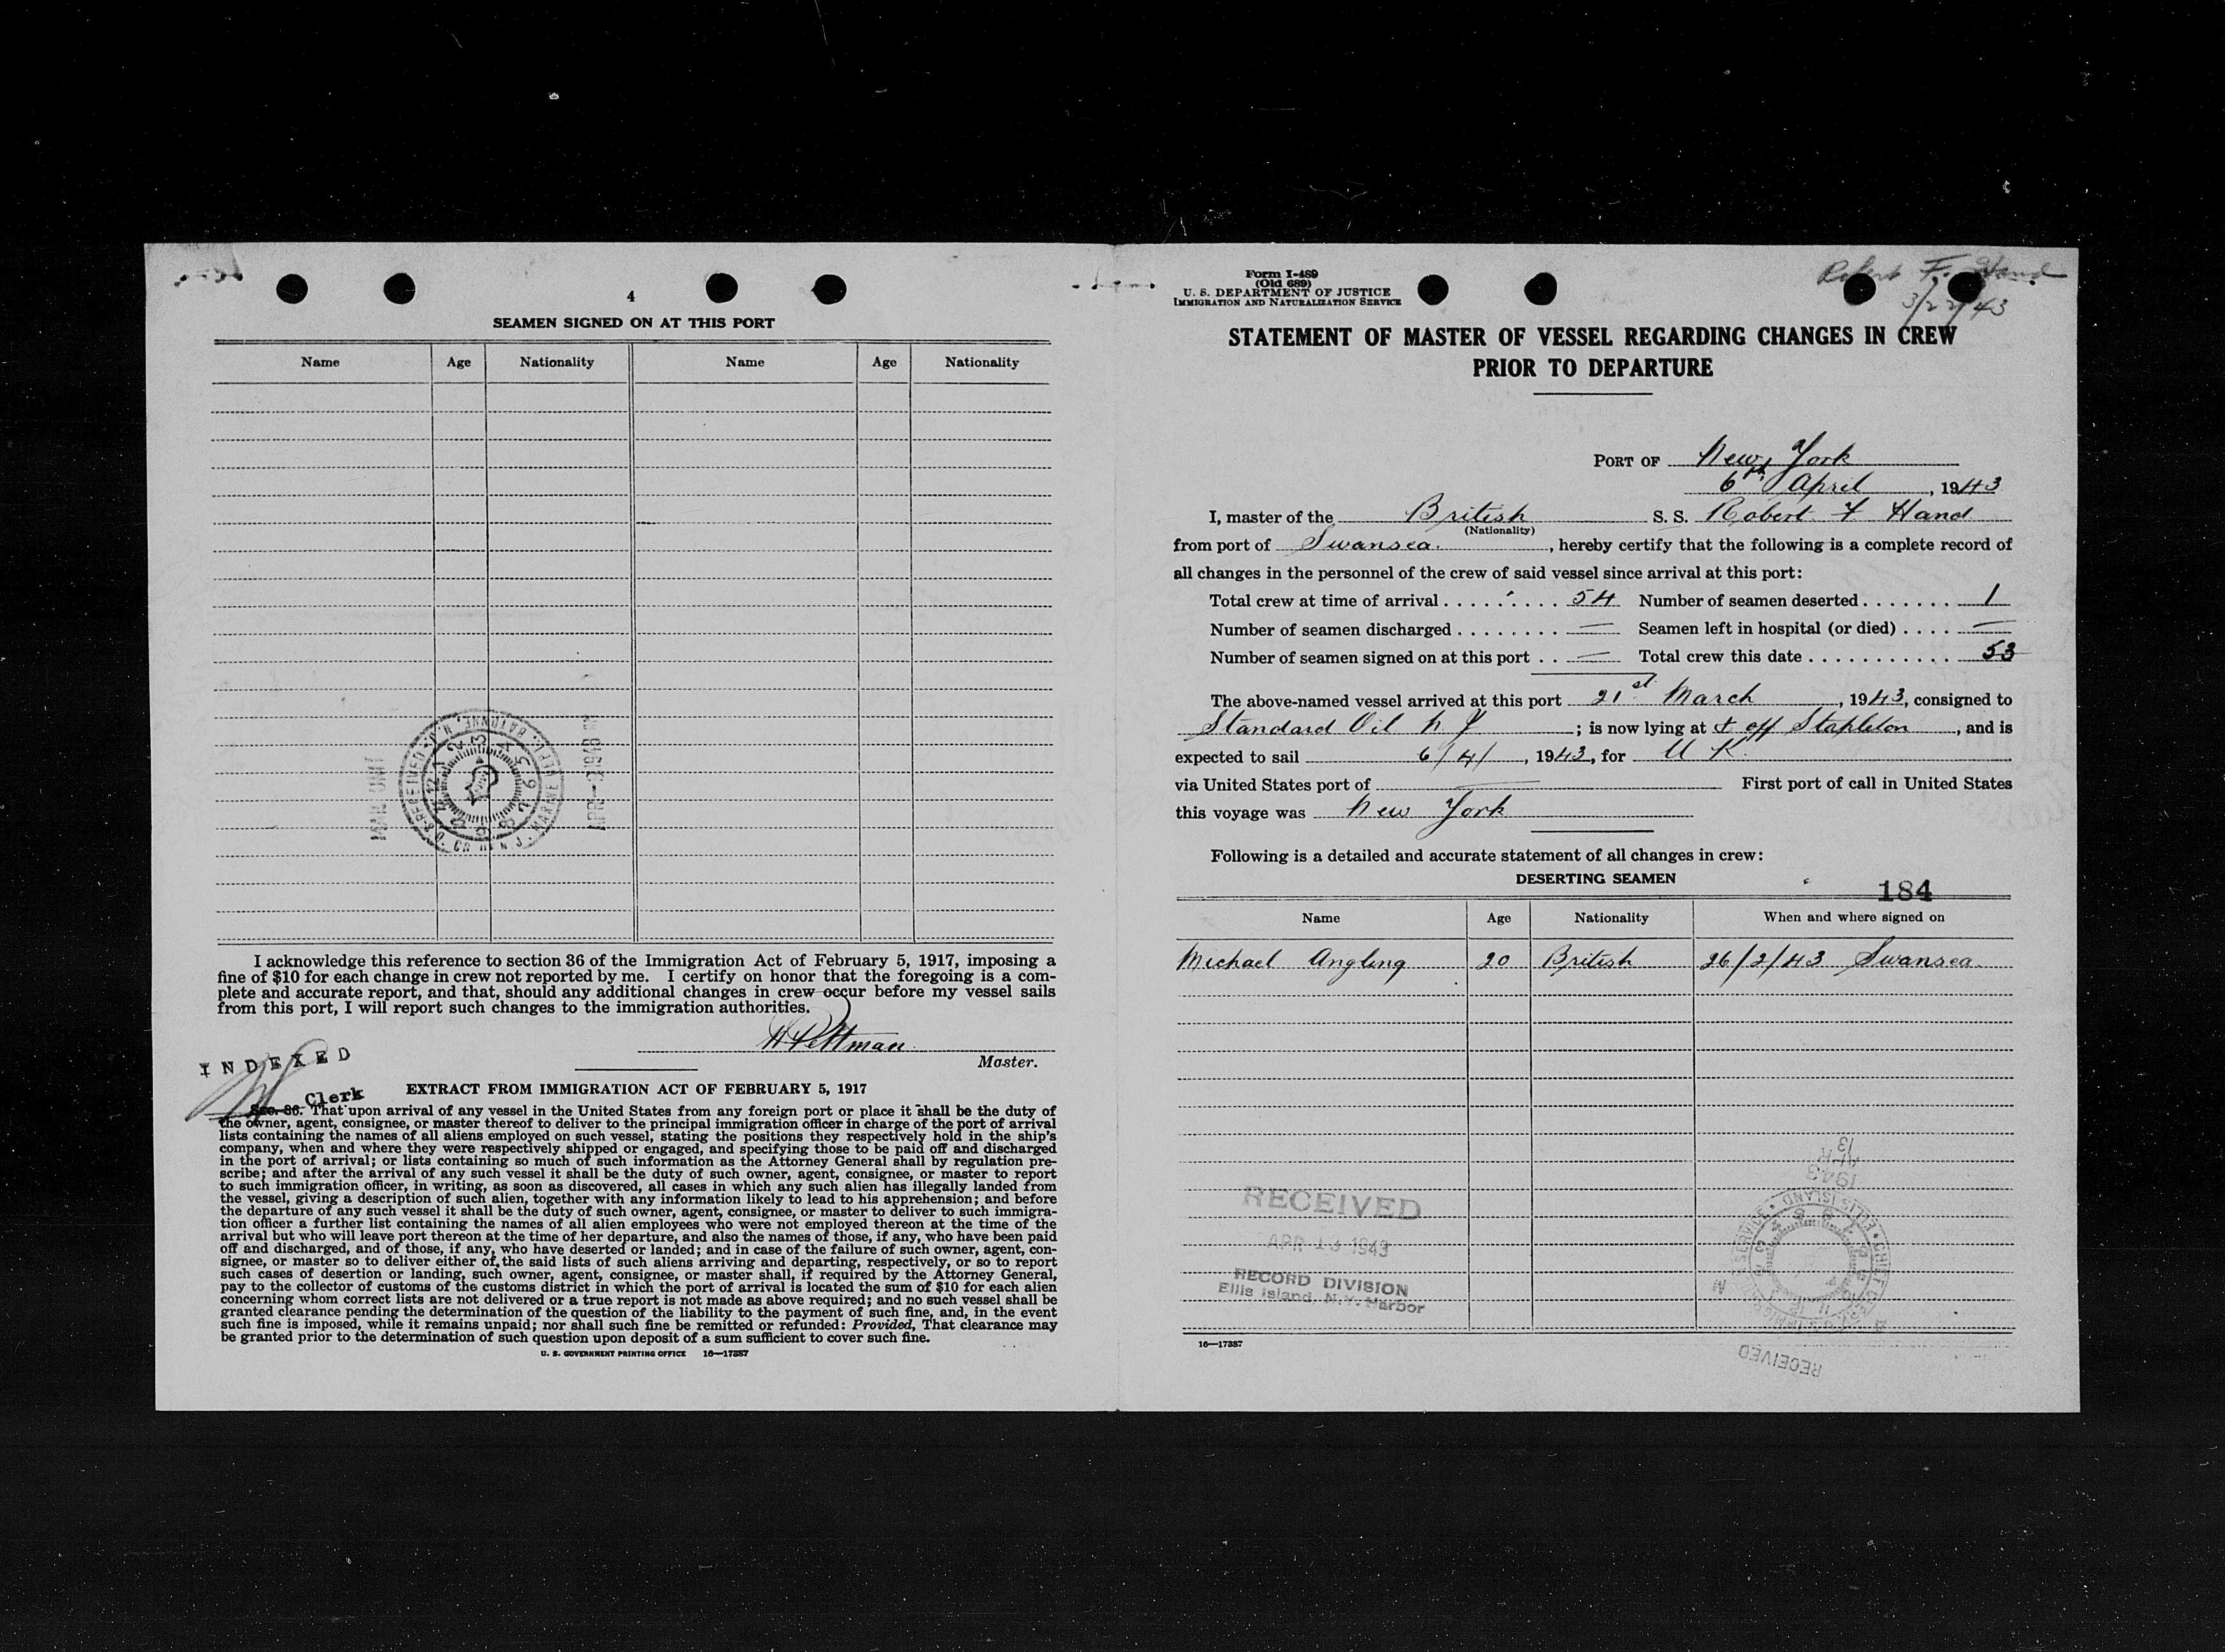 4
SEAMEN SIGNED ON AT THIS PORT
Name Age Nationality Name Age Nationality
MAIL UNIT
I acknowledge this reference to section 36 of the Immigration Act of February 5, 1917, imposing a
fine of $10 for each change in crew not reported by me. I certify on honor that the foregoing is a com-
plete and accurate report, and that, should any additional changes in crew occur before my vessel sails
from this port, I will report such changes to the immigration authorities.
H Pettman
Master.
INDEXED
Clerk
EXTRACT FROM IMMIGRATION ACT OF FEBRUARY 5, 1917
Sec. 36. That upon arrival of any vessel in the United States from any foreign port or place it shall be the duty of
the owner, agent, consignee, or master thereof to deliver to the principal immigration officer in charge of the port of arrival
lists containing the names of all aliens employed on such vessel, stating the positions they respectively hold in the ship's
company, when and where they were respectively shipped or engaged, and specifying those to be paid off and discharged
in the port of arrival; or lists containing so much of such information as the Attorney General shall by regulation pre-
scribe; and after the arrival of any such vessel it shall be the duty of such owner, agent, consignee, or master to report
to such immigration officer, in writing, as soon as discovered, all cases in which any such alien has illegally landed from
the vessel, giving a description of such alien, together with any information likely to lead to his apprehension; and before
the departure of any such vessel it shall be the duty of such owner, agent, consignee, or master to deliver to such immigra-
tion officer a further list containing the names of all alien employees who were not employed thereon at the time of the
arrival but who will leave port thereon at the time of her departure, and also the names of those, if any, who have been paid
off and discharged, and of those, if any, who have deserted or landed; and in case of the failure of such owner, agent, con-
signee, or master so to deliver either of the said lists of such aliens arriving and departing, respectively, or so to report
such cases of desertion or landing, such owner, agent, consignee, or master shall, if required by the Attorney General,
pay to the collector of customs of the customs district in which the port of arrival is located the sum of $10 for each alien
concerning whom correct lists are not delivered or a true report is not made as above required; and no such vessel shall be
granted clearance pending the determination of the question of the liability to the payment of such fine, and, in the event
such fine is imposed, while it remains unpaid; nor shall such fine be remitted or refunded: Provided, That clearance may
be granted prior to the determination of such question upon deposit of a sum sufficient to cover such fine.
U. S. GOVERNMENT PRINTING OFFICE 16—17387
Form I-489
(Old 689)
U. S. DEPARTMENT OF JUSTICE
IMMIGRATION AND NATURALIZATION SERVICE
Robert F. Hand
3/22/43
STATEMENT OF MASTER OF VESSEL REGARDING CHANGES IN CREW
PRIOR TO DEPARTURE
PORT OF New York
6th April, 1943
I, master of the British S. S. Robert F Hand
(Nationality)
from port of Swansea., hereby certify that the following is a complete record of
all changes in the personnel of the crew of said vessel since arrival at this port:
Total crew at time of arrival . . . . . . . . 54 Number of seamen deserted . . . . . . . 1
Number of seamen discharged . . . . . . . . — Seamen left in hospital (or died) . . . . —
Number of seamen signed on at this port . . — Total crew this date . . . . . . . . . . . . 53
The above-named vessel arrived at this port 21st March, 1943, consigned to
Standard Oil N J; is now lying at & off Stapleton, and is
expected to sail 6/4/, 1943, for U K.
via United States port of — First port of call in United States
this voyage was New York
Following is a detailed and accurate statement of all changes in crew:
DESERTING SEAMEN
184
Name Age Nationality When and where signed on
Michael Angling 20 British 26/2/43 Swansea.
1943
APR
13
RECEIVED
APR 13 1943
RECORD DIVISION
Ellis Island, N.Y. Harbor
RECEIVED
16—17387